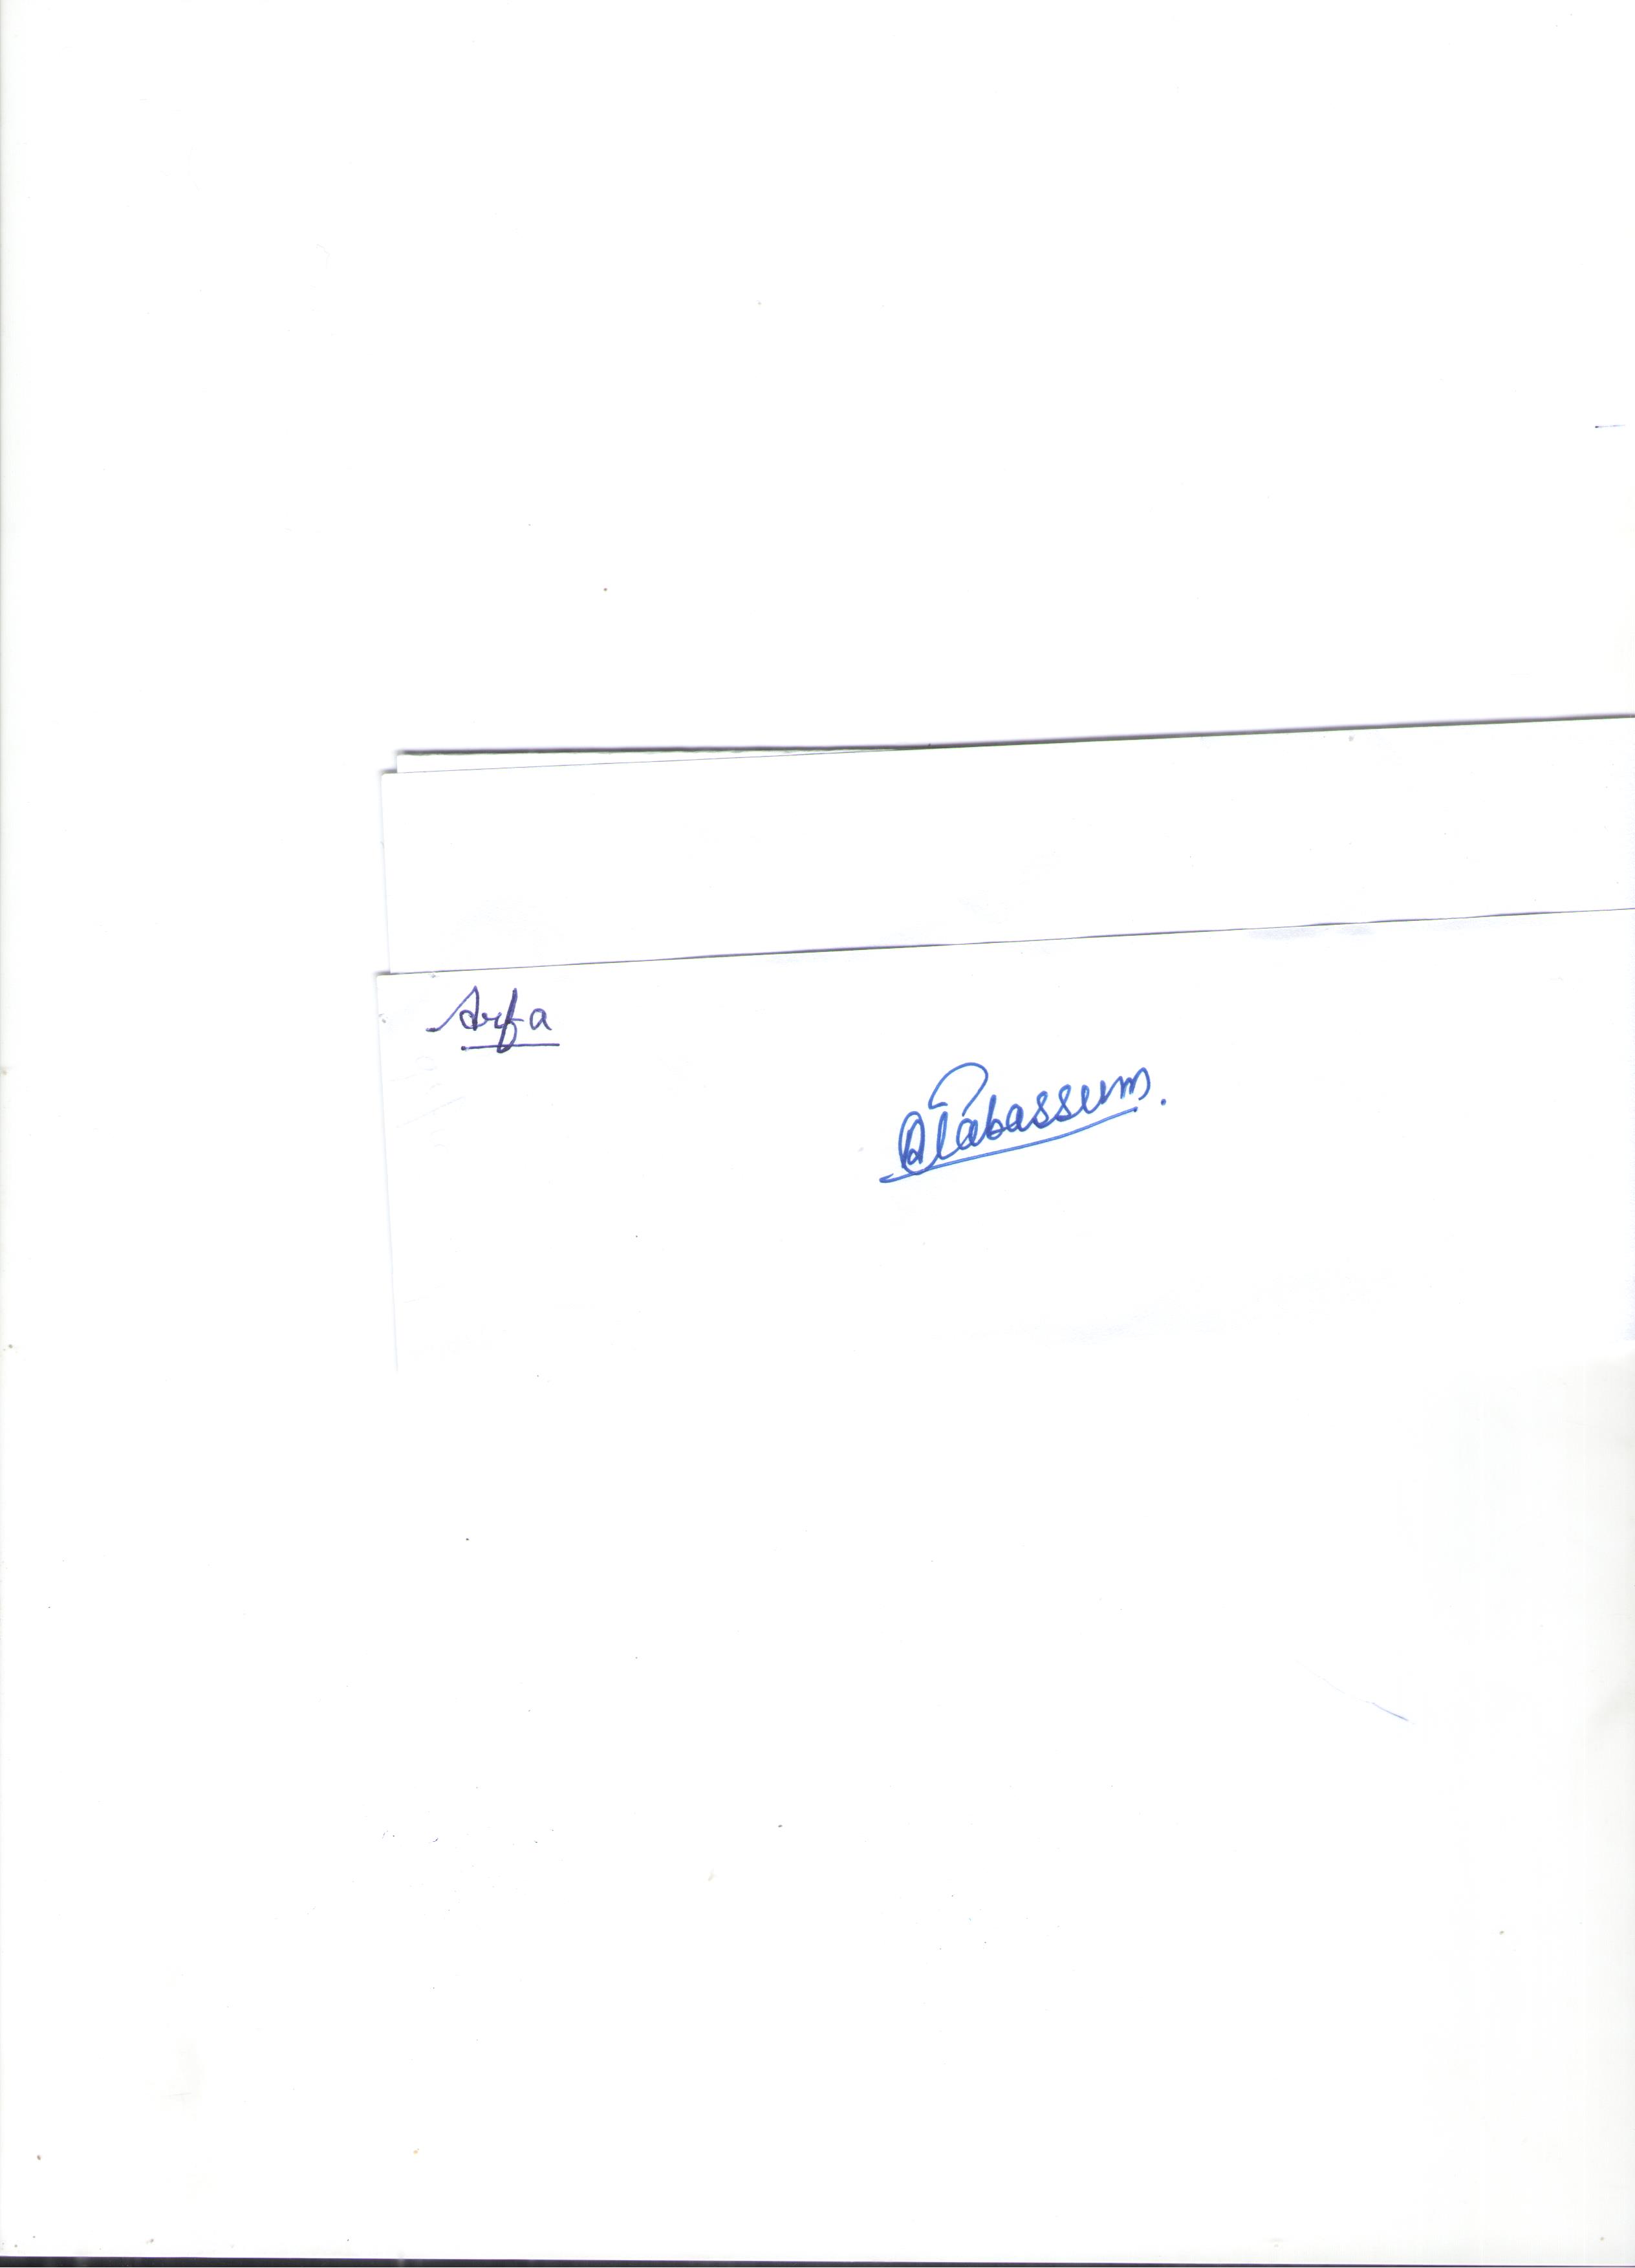 Arfa
ATabassum.